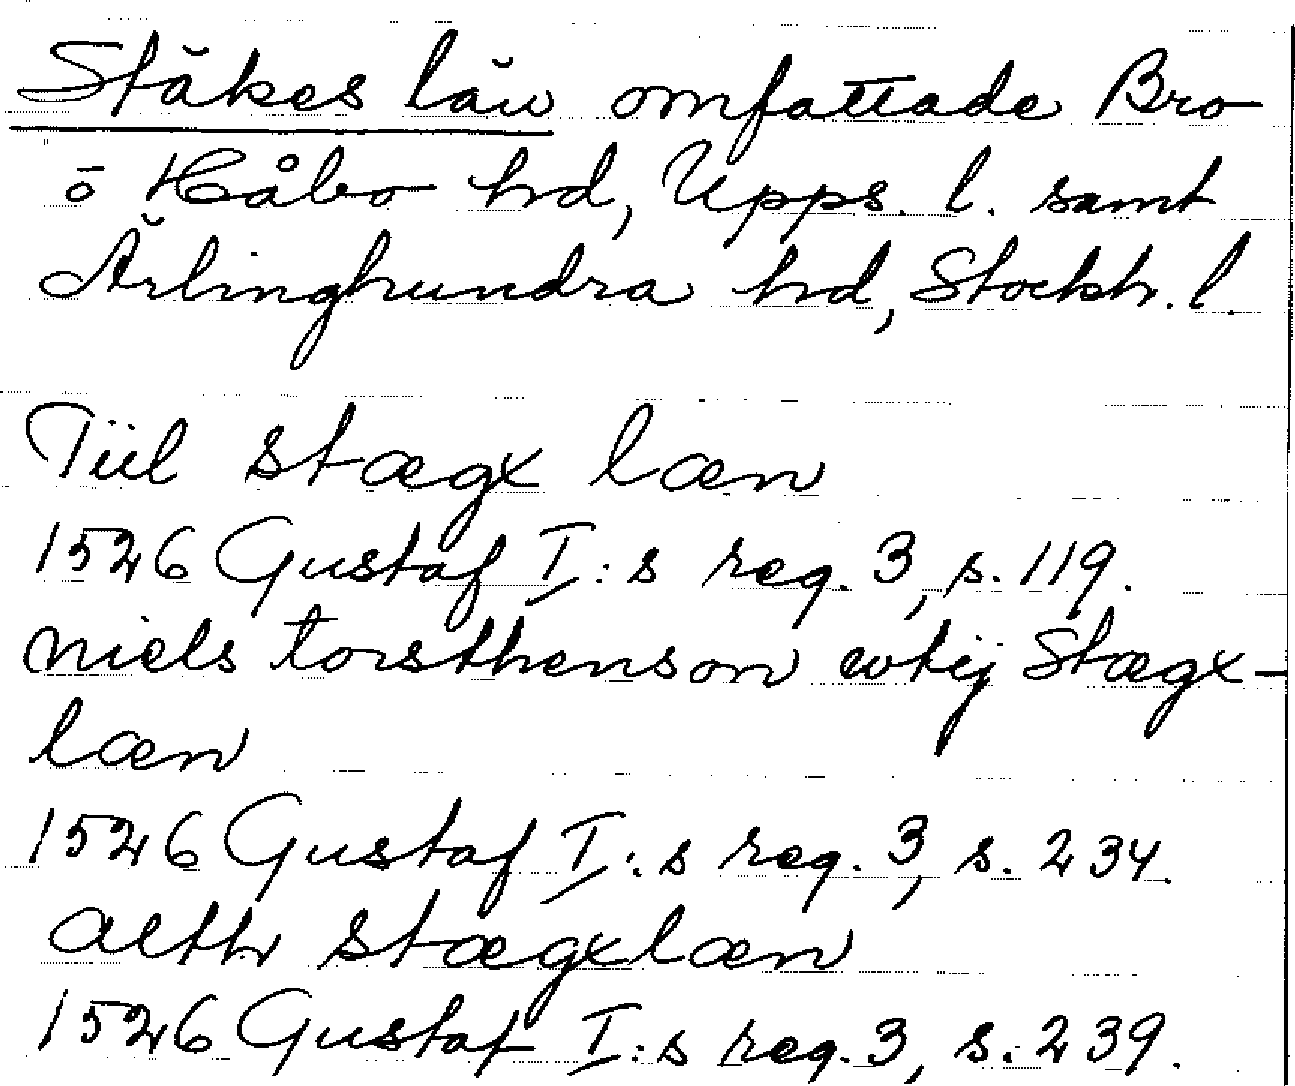 Stäkes län omfattade Bro
o Håbo hrd, Upps. l. samt
Ärlinghundra hrd, Stockh. l.
Tiil stægx læn
1526 Gustaf I:s reg. 3, s. 119.
niels torsthenson wtij Stægx-
læn
1526 Gustaf I:s reg. 3, s. 234.
alth stægxlæn
1526 Gustaf I:s reg. 3, s. 239.